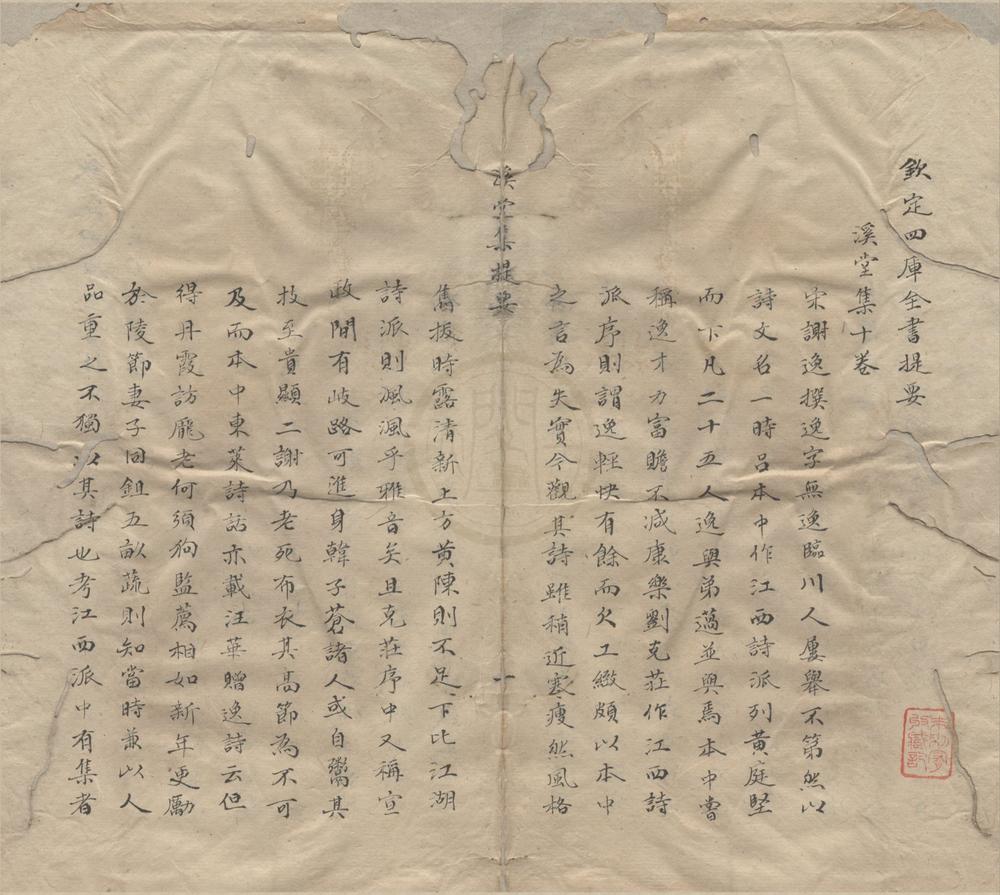 欽定四庫全書提要
溪堂集十卷
宋謝逸撰逸字無逸臨川人屢舉不第然以
詩文名一時呂本中作江西詩派列黃庭堅
而下凡二十五人逸與弟薖並與焉本中嘗
稱逸才力富贍不減康樂劉克莊作江西詩
派序則謂逸輕快有餘而欠工緻頗以本中
之言為失實今觀其詩雖稍近寒瘦然風格
溪堂集提要
一
雋拔時露清新上方黃陳則不足下比江湖
詩派則渢渢乎雅音矣且克莊序中又稱宣
政間有岐路可進身韓子蒼諸人或自鬻其
技至貴顯二謝乃老死布衣其高節為不可
及而本中東萊詩話亦載汪革贈逸詩云但
得丹霞訪龐老何須狗監薦相如新年更勵
於陵節妻子同鉏五畝蔬則知當時兼以人
品重之不獨以其詩也考江西派中有集者